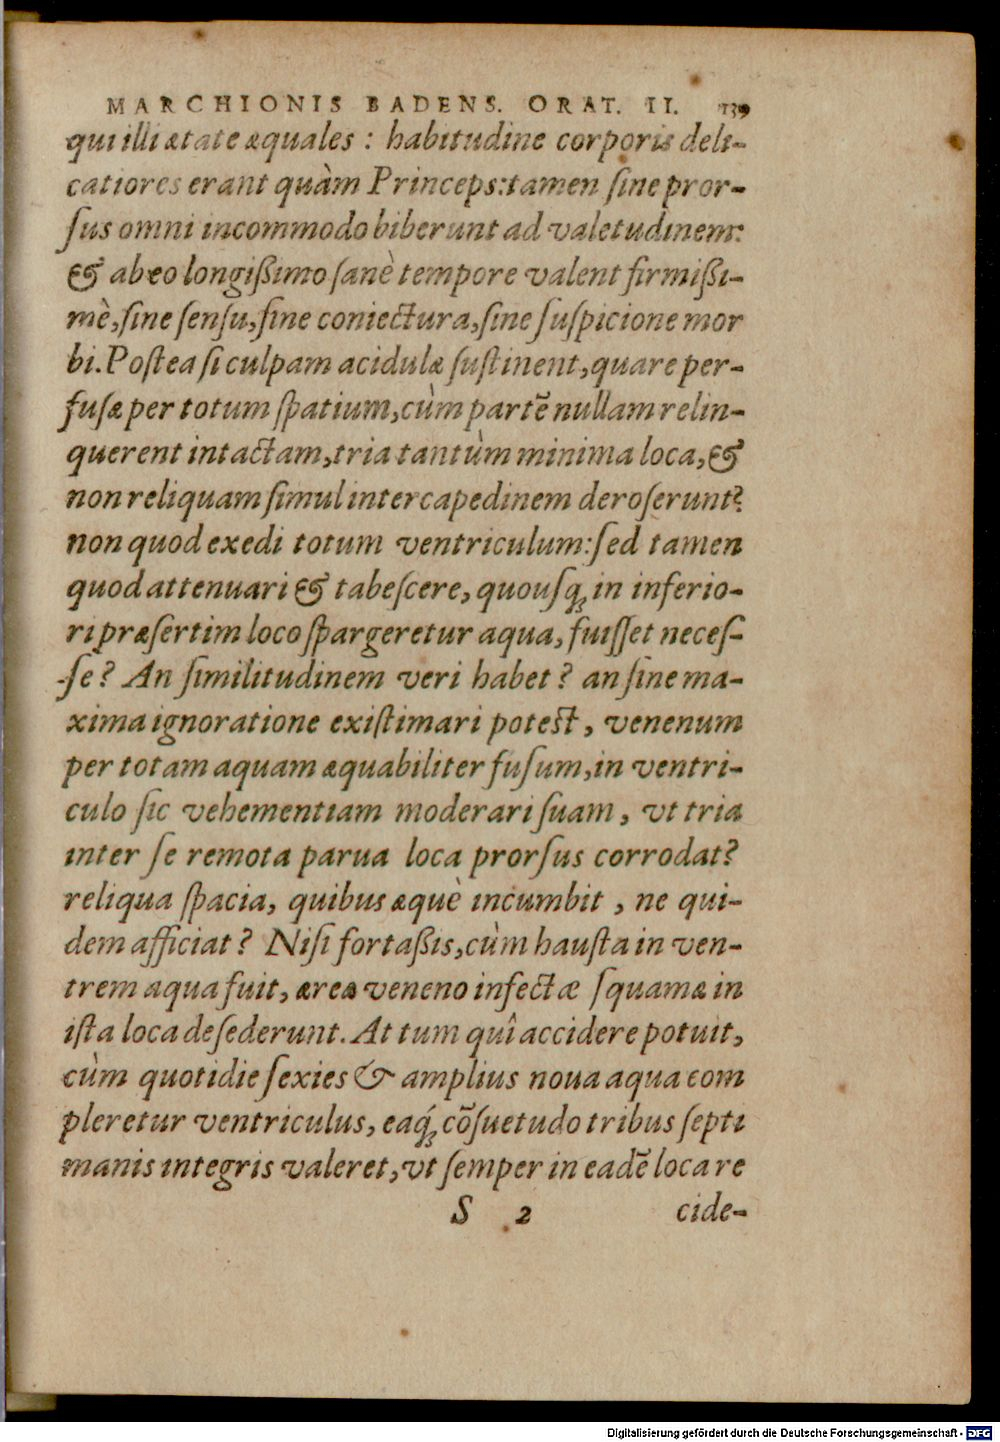 MARCHIONIS BADENS. ORAT. II. 139
qui illi ætate æquales : habitudine corporis deli-
catiores erant quàm Princeps:tamen ſine pror-
ſus omni incommodo biberunt ad valetudinem:
& ab eo longißimo ſanè tempore valent firmißi-
mè,ſine ſenſu,ſine coniectura,ſine ſuſpicione mor
bi.Poſtea ſi culpam acidulæ ſuſtinent,quare per-
fuſæ per totum ſpatium,cùm partẽ nullam relin-
querent intactam,tria tantùm minima loca,&
non reliquam ſimul intercapedinem deroſerunt?
non quod exedi totum ventriculum:ſed tamen
quod attenuari & tabeſcere, quouſq; in inferio-
ri præſertim loco ſpargeretur aqua, fuiſſet neceſ-
ſe? An ſimilitudinem veri habet? an ſine ma-
xima ignoratione exiſtimari poteſt, venenum
per totam aquam æquabiliter fuſum,in ventri-
culo ſic vehementiam moderari ſuam, vt tria
inter ſe remota parua loca prorſus corrodat?
reliqua ſpacia, quibus æquè incumbit, ne qui-
dem afficiat? Niſi fortaßis,cùm hauſta in ven-
trem aqua fuit, ærea veneno infectæ ſquamæ in
iſta loca deſederunt. At tum quî accidere potuit,
cùm quotidie ſexies & amplius noua aqua com
pleretur ventriculus, eaq́; cõſuetudo tribus ſepti
manis integris valeret,vt ſemper in eadẽ loca re
S 2 cide-
Digitalisierung gefördert durch die Deutsche Forschungsgemeinschaft - DFG